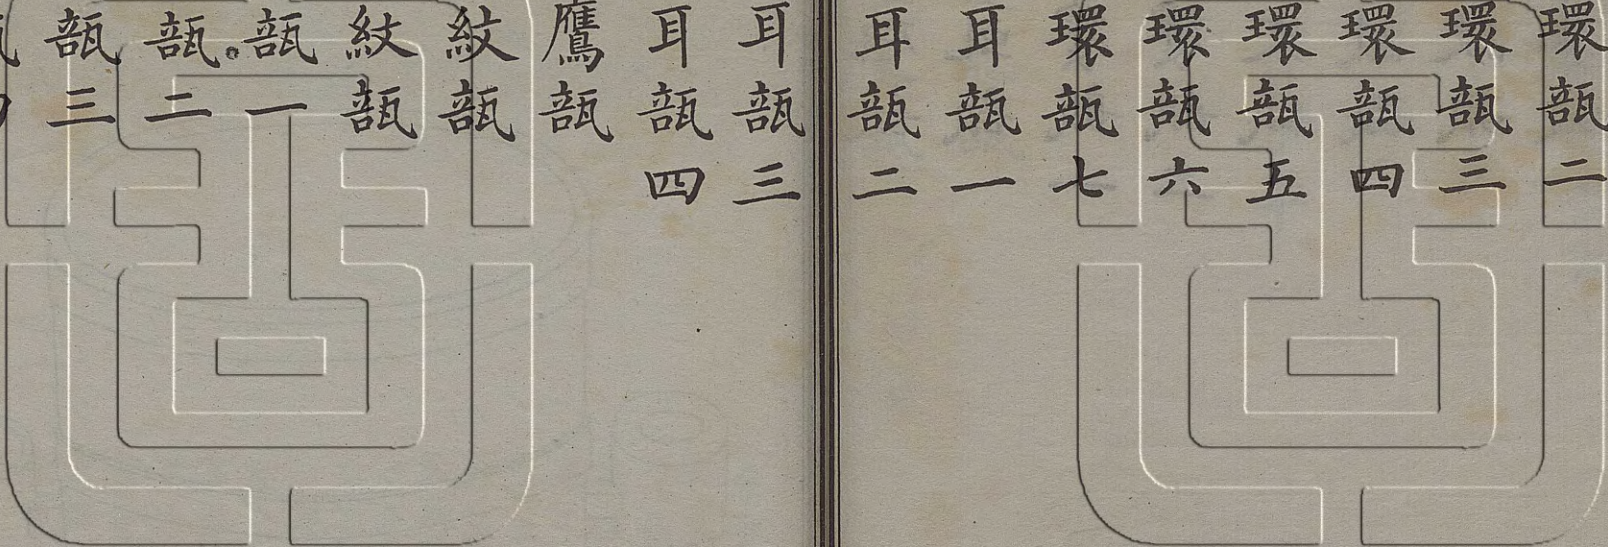 環瓿二
環瓿三
環瓿四
環瓿五
環瓿六
環瓿七
耳瓿一
耳瓿二
耳瓿三
耳瓿四
鷹瓿
紋瓿
紋瓿
瓿一
瓿二
瓿三